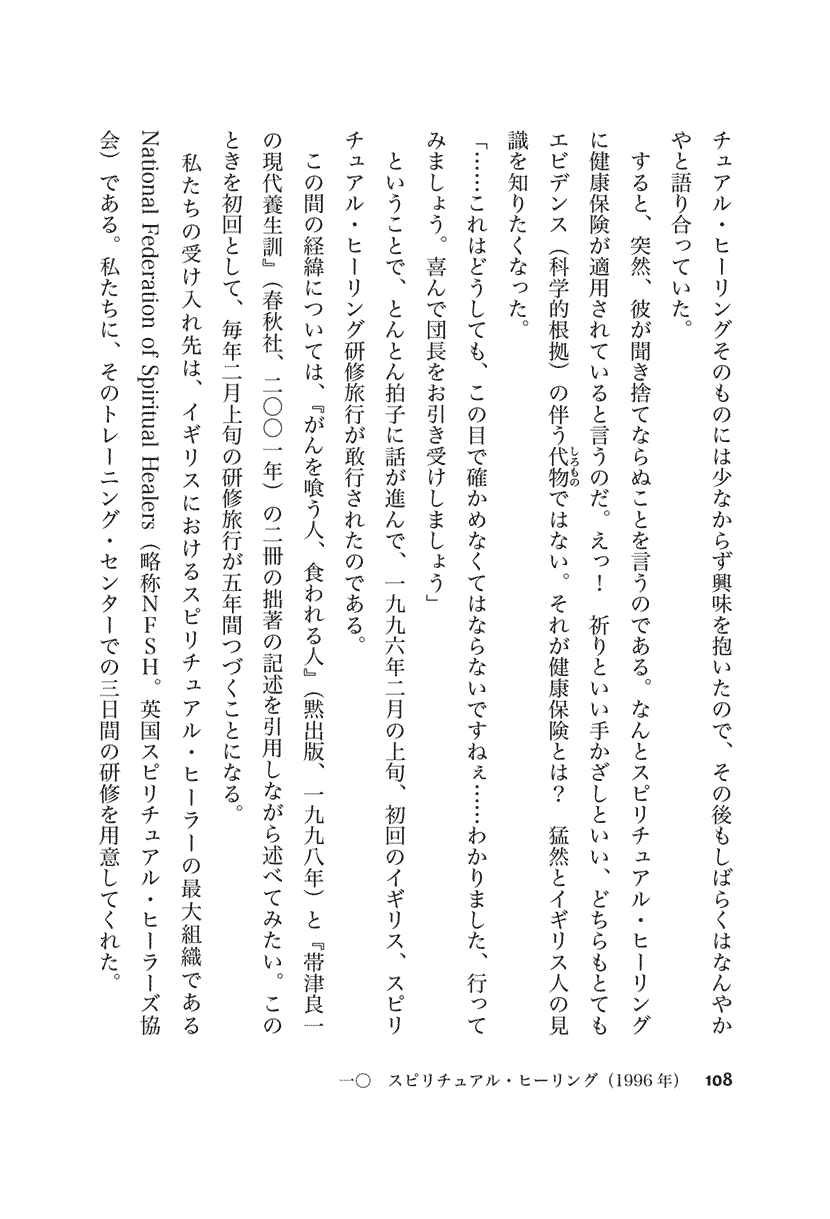 チュアル・ヒーリングそのものには少なからず興味を抱いたので、その後もしばらくはなんやか
やと語り合っていた。
すると、突然、彼が聞き捨てならぬことを言うのである。なんとスピリチュアル・ヒーリング
に健康保険が適用されていると言うのだ。えっ！　祈りといい手かざしといい、どちらもとても
エビデンス（科学的根拠）の伴う代物ではない。それが健康保険とは？　猛然とイギリス人の見
しろもの
識を知りたくなった。
「……これはどうしても、この目で確かめなくてはならないですねぇ……わかりました、行って
みましょう。喜んで団長をお引き受けしましょう」
ということで、とんとん拍子に話が進んで、一九九六年二月の上旬、初回のイギリス、スピリ
チュアル・ヒーリング研修旅行が敢行されたのである。
この間の経緯については、『がんを喰う人、食われる人』（黙出版、一九九八年）と『帯津良一
の現代養生訓』（春秋社、二〇〇一年）の二冊の拙著の記述を引用しながら述べてみたい。この
ときを初回として、毎年二月上旬の研修旅行が五年間つづくことになる。
私たちの受け入れ先は、イギリスにおけるスピリチュアル・ヒーラーの最大組織である
National Federation of Spiritual Healers（略称NFSH。英国スピリチュアル・ヒーラーズ協
会）である。私たちに、そのトレーニング・センターでの三日間の研修を用意してくれた。
一〇　スピリチュアル・ヒーリング（1996年）　108